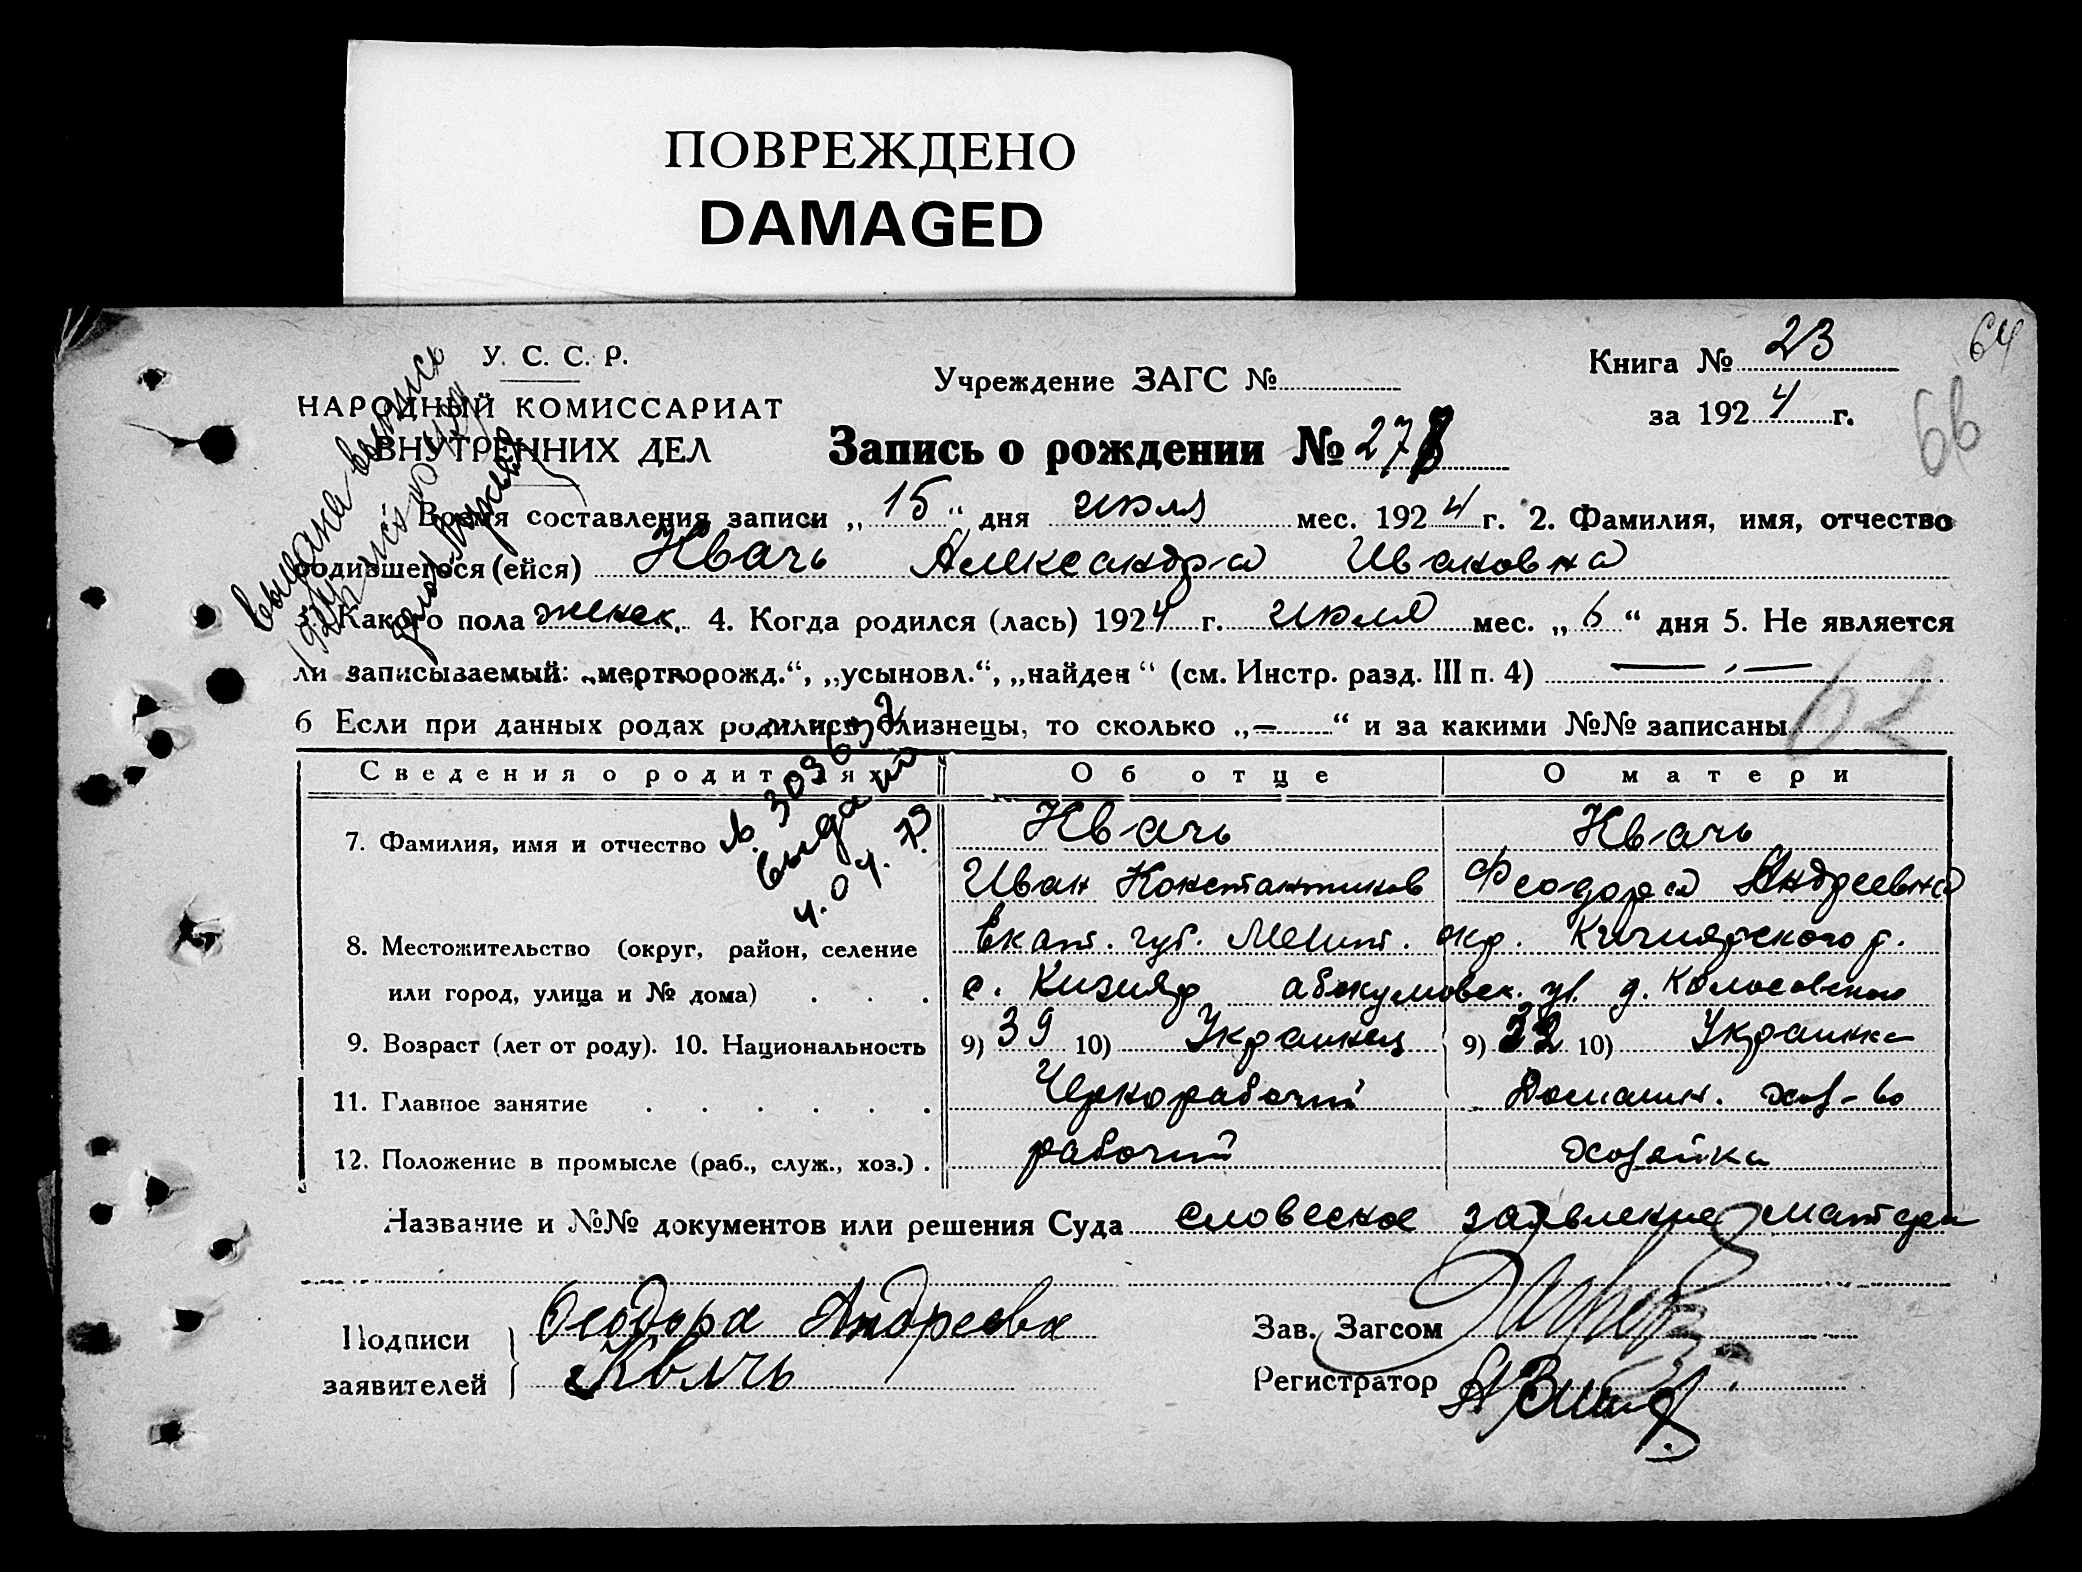 ПОВРЕЖДЕНО
DAMAGED
У. С. С. Р.
НАРОДНЫЙ КОМИССАРИАТ
ВНУТРЕННИХ ДЕЛ
Учреждение ЗАГС №
Книга № 23
за 1924 г.
64
66
Запись о рождении № 278
Время составления записи „ 15 “ дня июля мес. 1924 г. 2. Фамилия, имя, отчество
родившегося (ейся) Квачь Александра Ивановна
3. Какого пола женск. 4. Когда родился (лась) 1924 г. июля мес. „ 6 “ дня 5. Не является
ли записываемый: „мертворожд.“, „усыновл.“, „найден“ (см. Инстр. разд. III п. 4) — , —
62
6 Если при данных родах родились близнецы, то сколько „ — “ и за какими №№ записаны
Сведения о родителях Об отце О матери
7. Фамилия, имя и отчество Квачь Квачь
Иван Константинов Феодора Андреевна
выдано
4.04.73
8. Местожительство (округ, район, селение Екат. губ. Мелит. окр. Кизиярского р.
или город, улица и № дома) . . . с. Кизияр абакумовск. ул. д. Колосовского
9. Возраст (лет от роду). 10. Национальность 9) 39 10) Украинец 9) 32 10) Украинка
11. Главное занятие . . . . . . Чернорабочий Домашн. хоз-во
12. Положение в промысле (раб., служ., хоз.) . рабочий хозяйка
Название и №№ документов или решения Суда словесное заявление матери
Подписи Феодора Андреевна
заявителей Квачь
Зав. Загсом
Регистратор